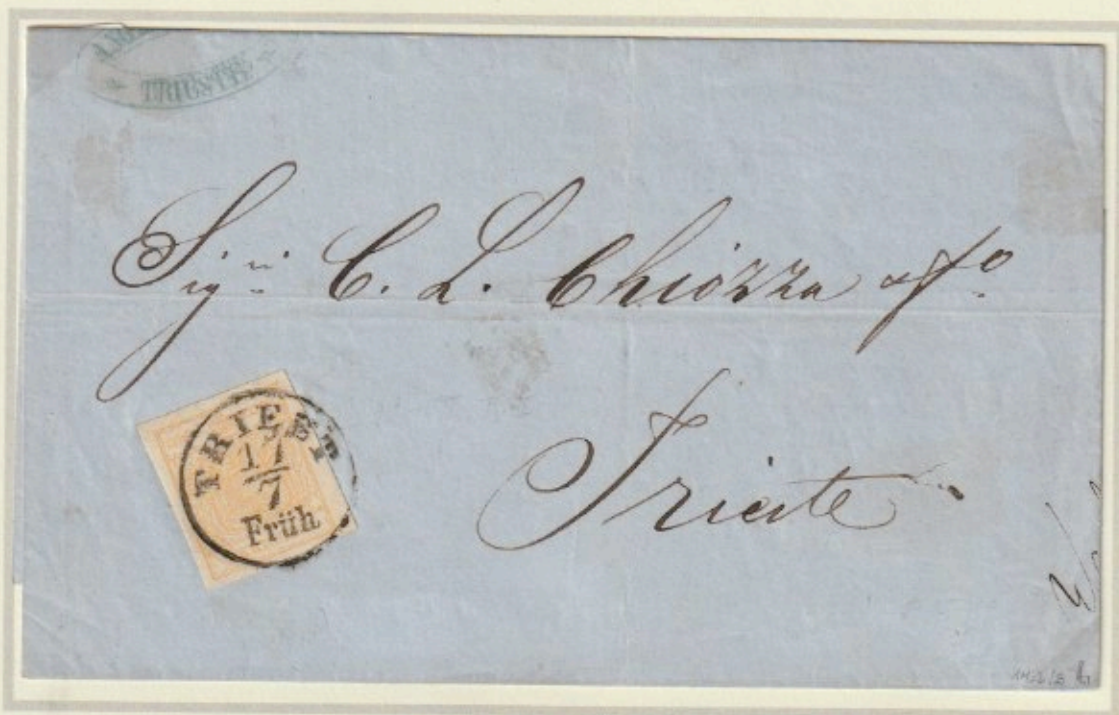 TRIESTE
Sigri C. L. Chiozza & fo
Trieste
TRIEST
17
7
Früh